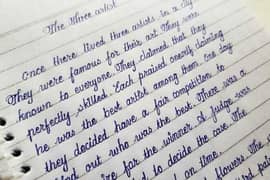 The three artist
Once there lived three artists in a city
They were famous for their art. They were
known to everyone. They claimed that they
perfectly skilled. Each praised exactly claiming
he was the best artist among them. One day
they decided have a fair competition to
find out who was the best. There was a
for the winner. A judge was
to decide the case. The
on time.
flowers. The